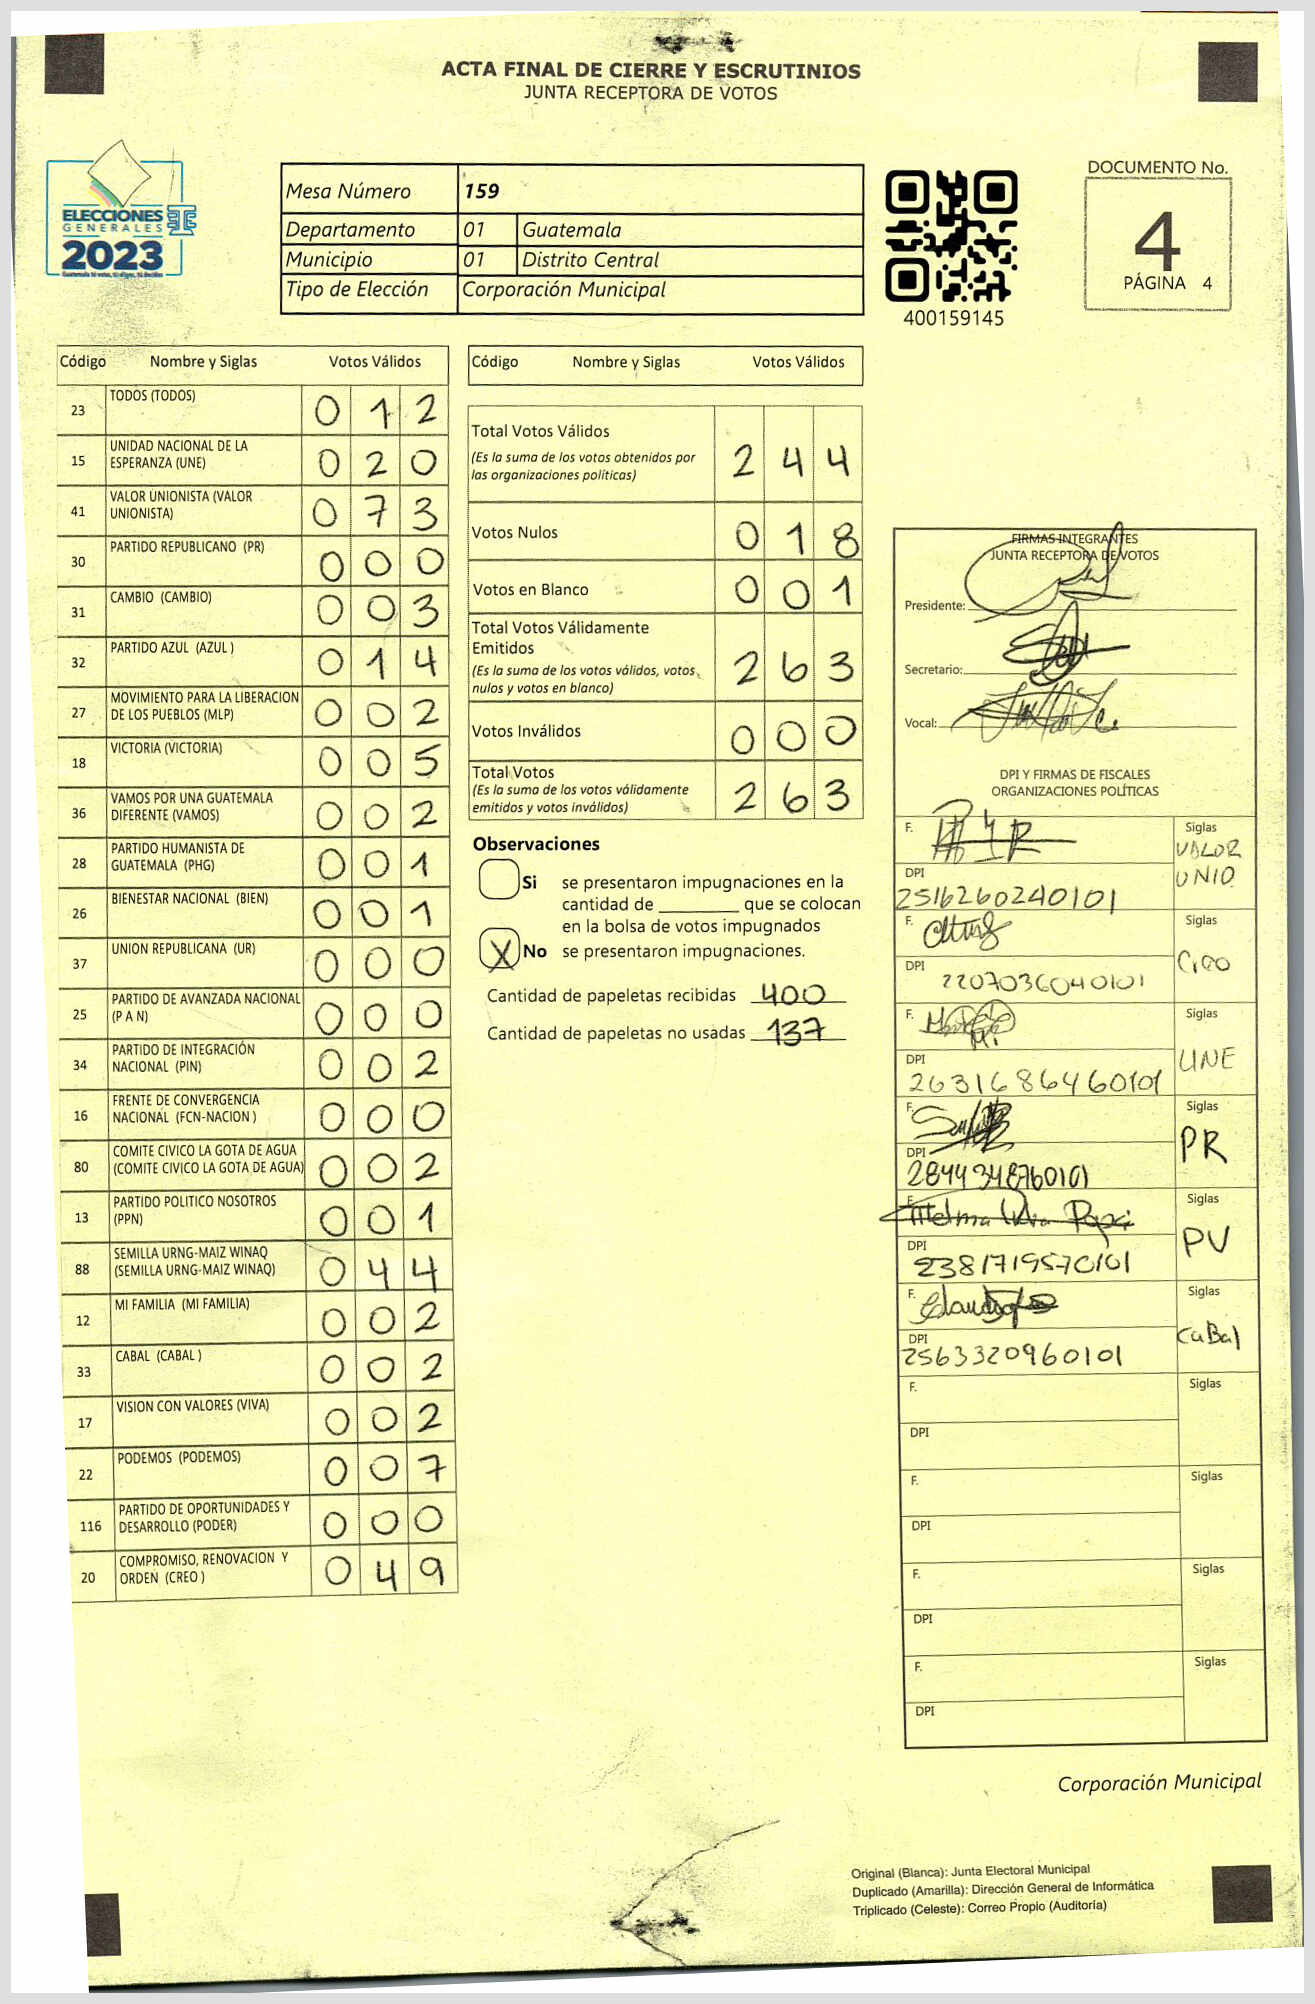 ACTA FINAL DE CIERRE Y ESCRUTINIOS
JUNTA RECEPTORA DE VOTOS
ELECCIONES
GENERALES
2023
Mesa Número 159
Departamento 01 Guatemala
Municipio 01 Distrito Central
Tipo de Elección Corporación Municipal
400159145
DOCUMENTO No.
4
PÁGINA 4
Código Nombre y Siglas Votos Válidos
23 TODOS (TODOS) 0 1 2
15 UNIDAD NACIONAL DE LA
ESPERANZA (UNE) 0 2 0
41 VALOR UNIONISTA (VALOR
UNIONISTA) 0 7 3
30 PARTIDO REPUBLICANO (PR) 0 0 0
31 CAMBIO (CAMBIO) 0 0 3
32 PARTIDO AZUL (AZUL ) 0 1 4
27 MOVIMIENTO PARA LA LIBERACION
DE LOS PUEBLOS (MLP) 0 0 2
18 VICTORIA (VICTORIA) 0 0 5
36 VAMOS POR UNA GUATEMALA
DIFERENTE (VAMOS) 0 0 2
28 PARTIDO HUMANISTA DE
GUATEMALA (PHG) 0 0 1
26 BIENESTAR NACIONAL (BIEN) 0 0 1
37 UNION REPUBLICANA (UR) 0 0 0
25 PARTIDO DE AVANZADA NACIONAL
(P A N) 0 0 0
34 PARTIDO DE INTEGRACIÓN
NACIONAL (PIN) 0 0 2
16 FRENTE DE CONVERGENCIA
NACIONAL (FCN-NACION ) 0 0 0
80 COMITE CIVICO LA GOTA DE AGUA
(COMITE CIVICO LA GOTA DE AGUA) 0 0 2
13 PARTIDO POLITICO NOSOTROS
(PPN) 0 0 1
88 SEMILLA URNG-MAIZ WINAQ
(SEMILLA URNG-MAIZ WINAQ) 0 4 4
12 MI FAMILIA (MI FAMILIA) 0 0 2
33 CABAL (CABAL ) 0 0 2
17 VISION CON VALORES (VIVA) 0 0 2
22 PODEMOS (PODEMOS) 0 0 7
116 PARTIDO DE OPORTUNIDADES Y
DESARROLLO (PODER) 0 0 0
20 COMPROMISO, RENOVACION Y
ORDEN (CREO ) 0 4 9
Código Nombre y Siglas Votos Válidos
Total Votos Válidos
(Es la suma de los votos obtenidos por
las organizaciones políticas) 2 4 4
Votos Nulos 0 1 8
Votos en Blanco 0 0 1
Total Votos Válidamente
Emitidos
(Es la suma de los votos válidos, votos
nulos y votos en blanco) 2 6 3
Votos Inválidos 0 0 0
Total Votos
(Es la suma de los votos válidamente
emitidos y votos inválidos) 2 6 3
Observaciones
Si se presentaron impugnaciones en la
cantidad de ________ que se colocan
en la bolsa de votos impugnados
X No se presentaron impugnaciones.
Cantidad de papeletas recibidas 400
Cantidad de papeletas no usadas 137
FIRMAS INTEGRANTES
JUNTA RECEPTORA DE VOTOS
Presidente:
Secretario:
Vocal:
DPI Y FIRMAS DE FISCALES
ORGANIZACIONES POLÍTICAS
F. Siglas
VALOR
UNIO
DPI
2516260240101
F. Siglas
Creo
DPI
2207036040101
F. Siglas
UNE
DPI
2631686460101
F. Siglas
PR
DPI
2844348760101
F. Siglas
PV
DPI
2381719570101
F. Siglas
CaBal
DPI
2563320960101
F. Siglas
DPI
F. Siglas
DPI
F. Siglas
DPI
F. Siglas
DPI
Corporación Municipal
Original (Blanca): Junta Electoral Municipal
Duplicado (Amarilla): Dirección General de Informática
Triplicado (Celeste): Correo Propio (Auditoría)